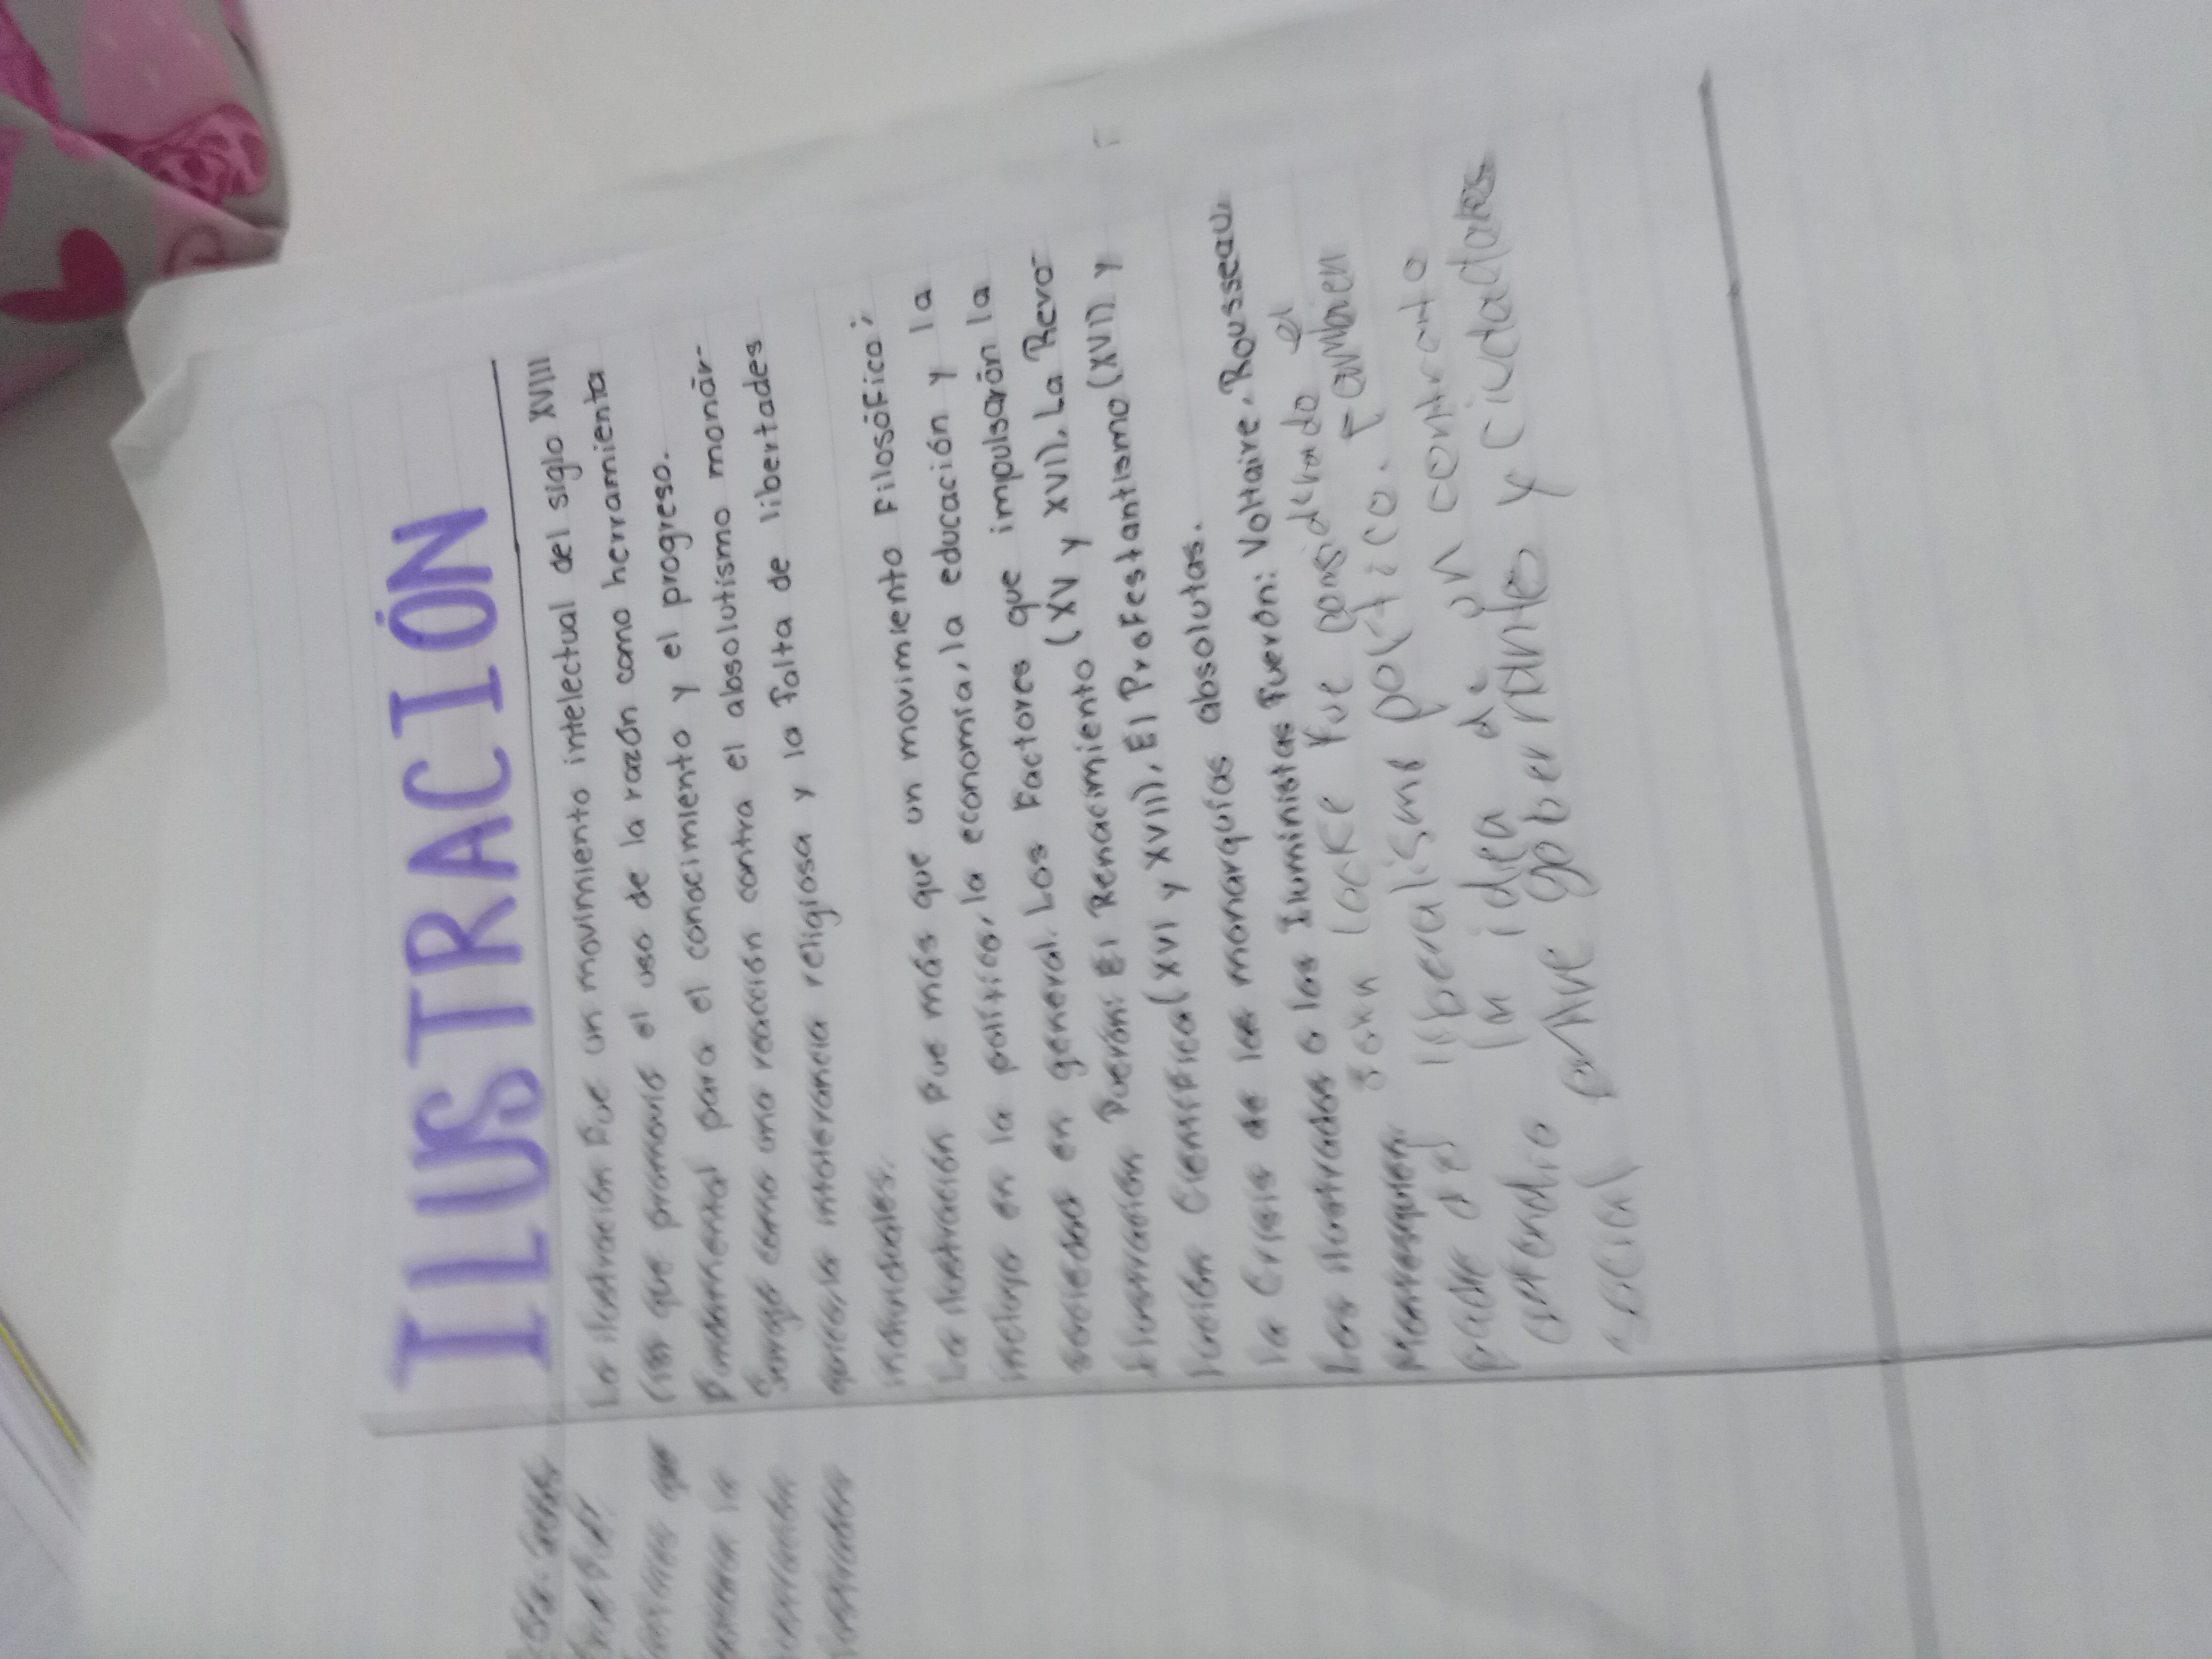 ILUSTRACIÓN
La ilustración fue un movimiento intelectual del siglo XVIII
que promovió el uso de la razón como herramienta
Fundamental para el conocimiento y el progreso.
Surge como una reacción contra el absolutismo monár-
quico, la intolerancia religiosa y la falta de libertades
individuales.
La ilustración fue más que un movimiento Filosófico;
incluyo en la política, la economía, la educación y la
sociedad en general. Los Factores que impulsarón la
Ilustración Fuerón: El Renacimiento (XV y XVI), La Revo-
lución Científica (XVI y XVII), El Profestantismo (XVI) y
la Crisis de las monarquías absolutas.
Los ilustrados o los Iluministas Fuerón: Voltaire, Rousseau,
Montesquieu
John Locke fue considerado el
padre del liberalismo político. también
la idea de un contrato
social entre gobernantes y ciudadanos
que
la